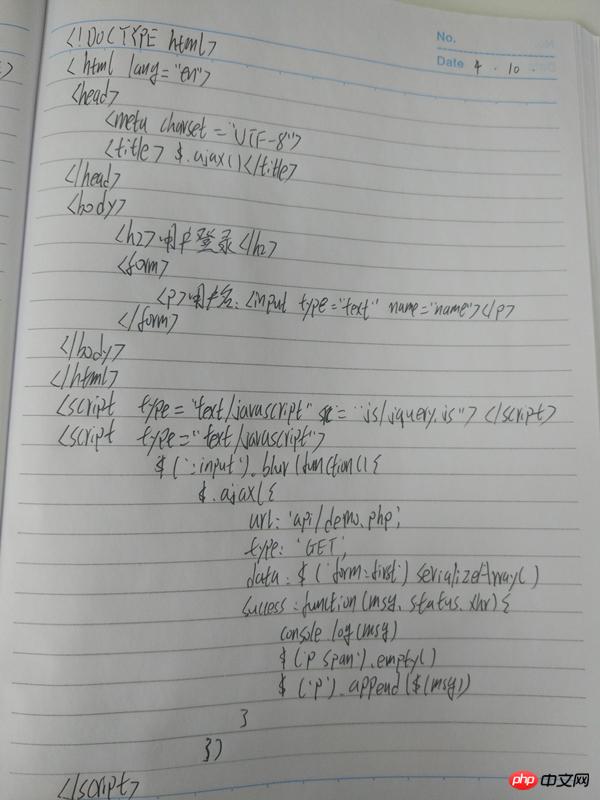 No.
Date 4 . 10 .
<!DOCTYPE html>
<html lang="en">
<head>
<meta charset="UTF-8">
<title>$.ajax()</title>
</head>
<body>
<h2>用户登录</h2>
<form>
<p>用户名: <input type="text" name="name"></p>
</form>
</body>
</html>
<script type="text/javascript" src="js/jquery.js"></script>
<script type="text/javascript">
$(':input').blur(function(){
$.ajax({
url: 'api/demo.php',
type: 'GET',
data: $('form:first').serializeArray()
success: function(msg, status, xhr){
console.log(msg)
$('p span').empty()
$('p').append($(msg))
}
})
</script>
php中文网